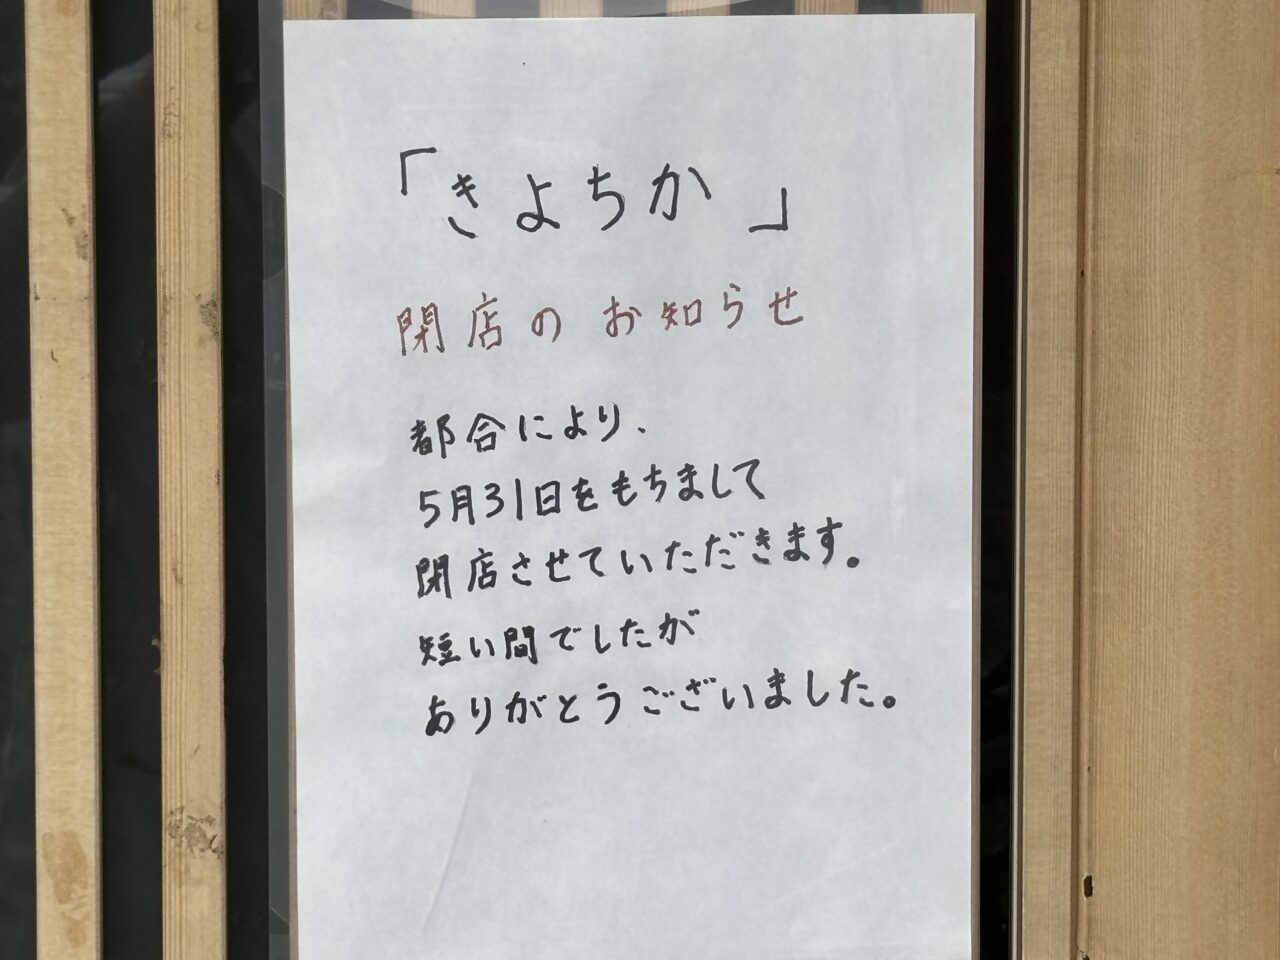 「きよちか」
閉店のお知らせ
都合により、
5月31日をもちまして
閉店させていただきます。
短い間でしたが
ありがとうございました。